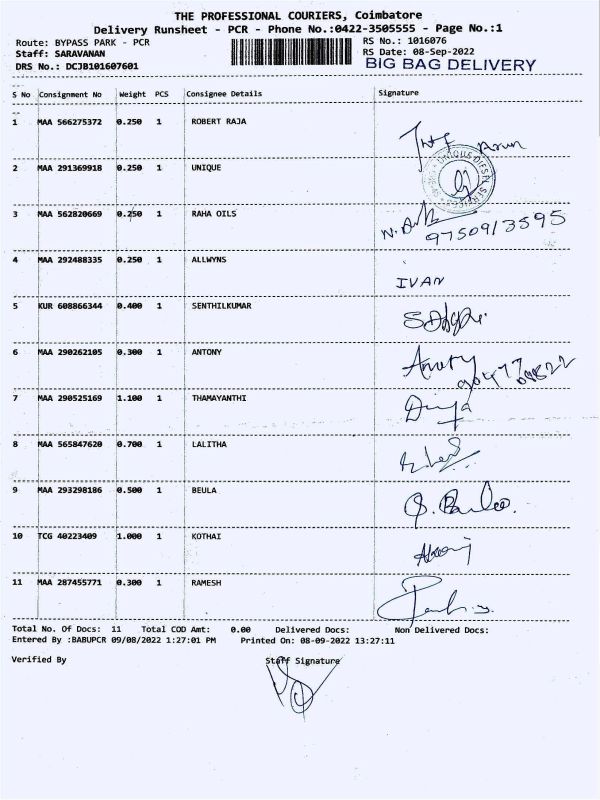 THE PROFESSIONAL COURIERS, Coimbatore
Delivery Runsheet - PCR - Phone No.:0422-3505555 - Page No.:1
Route: BYPASS PARK - PCR
Staff: SARAVANAN
DRS No.: DCJB101607601
RS No.: 1016076
RS Date: 08-Sep-2022
BIG BAG DELIVERY
S No Consignment No Weight PCS Consignee Details Signature
1 MAA 566275372 0.250 1 ROBERT RAJA
Arun
2 MAA 291369918 0.250 1 UNIQUE
UNIQUE DIESEL SERVICES
3 MAA 562820669 0.250 1 RAHA OILS
9750913595
4 MAA 292488335 0.250 1 ALLWYNS
IVAN
5 KUR 608866344 0.400 1 SENTHILKUMAR
6 MAA 290262105 0.300 1 ANTONY
7 MAA 290525169 1.100 1 THAMAYANTHI
8 MAA 565847620 0.700 1 LALITHA
9 MAA 293298186 0.500 1 BEULA
10 TCG 40223409 1.000 1 KOTHAI
11 MAA 287455771 0.300 1 RAMESH
Total No. Of Docs: 11 Total COD Amt: 0.00 Delivered Docs: Non Delivered Docs:
Entered By :BABUPCR 09/08/2022 1:27:01 PM Printed On: 08-09-2022 13:27:11
Verified By Staff Signature